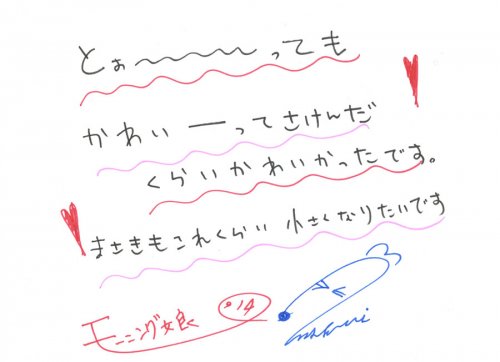 とぉ〜〜〜〜っても
かわいーってさけんだ
くらいかわいかったです。
まさきもこれくらい小さくなりたいです
モーニング娘 '14